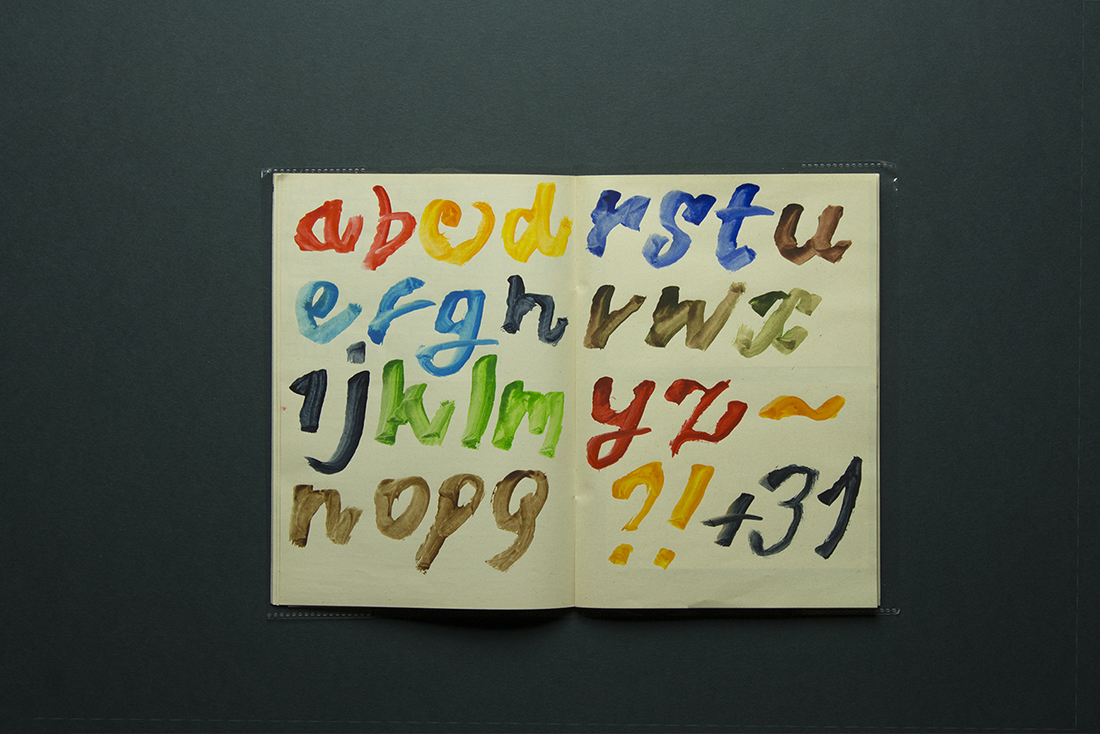 abcd
efgh
ijklm
nopq
rstu
vwx
yz~
?!+31